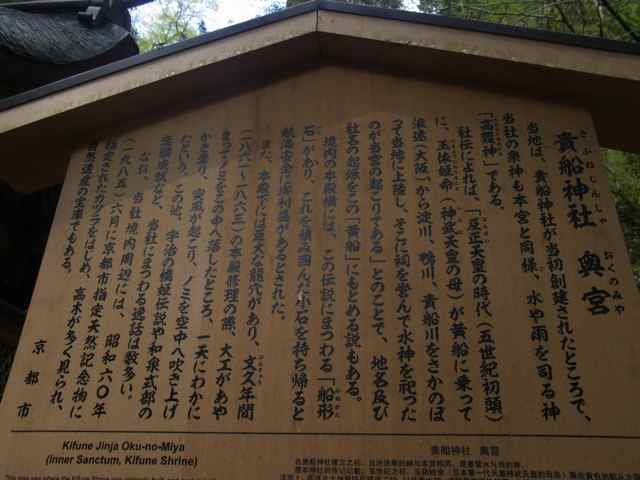 貴船神社 奥宮
きふねじんじゃ おくのみや
当地は、貴船神社が当初創建されたところで、
当社の祭神も本宮と同様、水や雨を司る神
「高龗神」である。
社伝によれば、「反正天皇の時代(五世紀初頭)
に、玉依姫命(神武天皇の母)が黄船に乗って
浪速(大阪)から淀川、鴨川、貴船川をさかのぼ
って当地に上陸し、そこに祠を営んで水神を祀った
のが当宮の起こりである」とのことで、地名及び
社名の起源をこの「黄船」にもとめる説もある。
境内の本殿横には、この伝説にまつわる「船形
石」があり、これを積み囲んだ小石を持ち帰ると
航海安全に御利益があるとされた。
また、本殿下には巨大な龍穴があり、文久年間
(一八六一〜一八六三)の本殿修理の際、大工があや
まってノミをこの中へ落したところ、一天にわかに
かき曇り、突風が起こり、ノミを空中へ吹き上げ
たという。この他、宇治の橋姫伝説や和泉式部の
恋願成就など、当社にまつわる逸話は数多い。
なお、当社境内周辺には、昭和六〇年
(一九八五)六月に京都市指定天然記念物に
指定されたカツラをはじめ、高木が多く見られ、
自然遺産の宝庫でもある。
京都市
Kifune Jinja Oku-no-Miya
(Inner Sanctum, Kifune Shrine)
貴船神社 奥宮